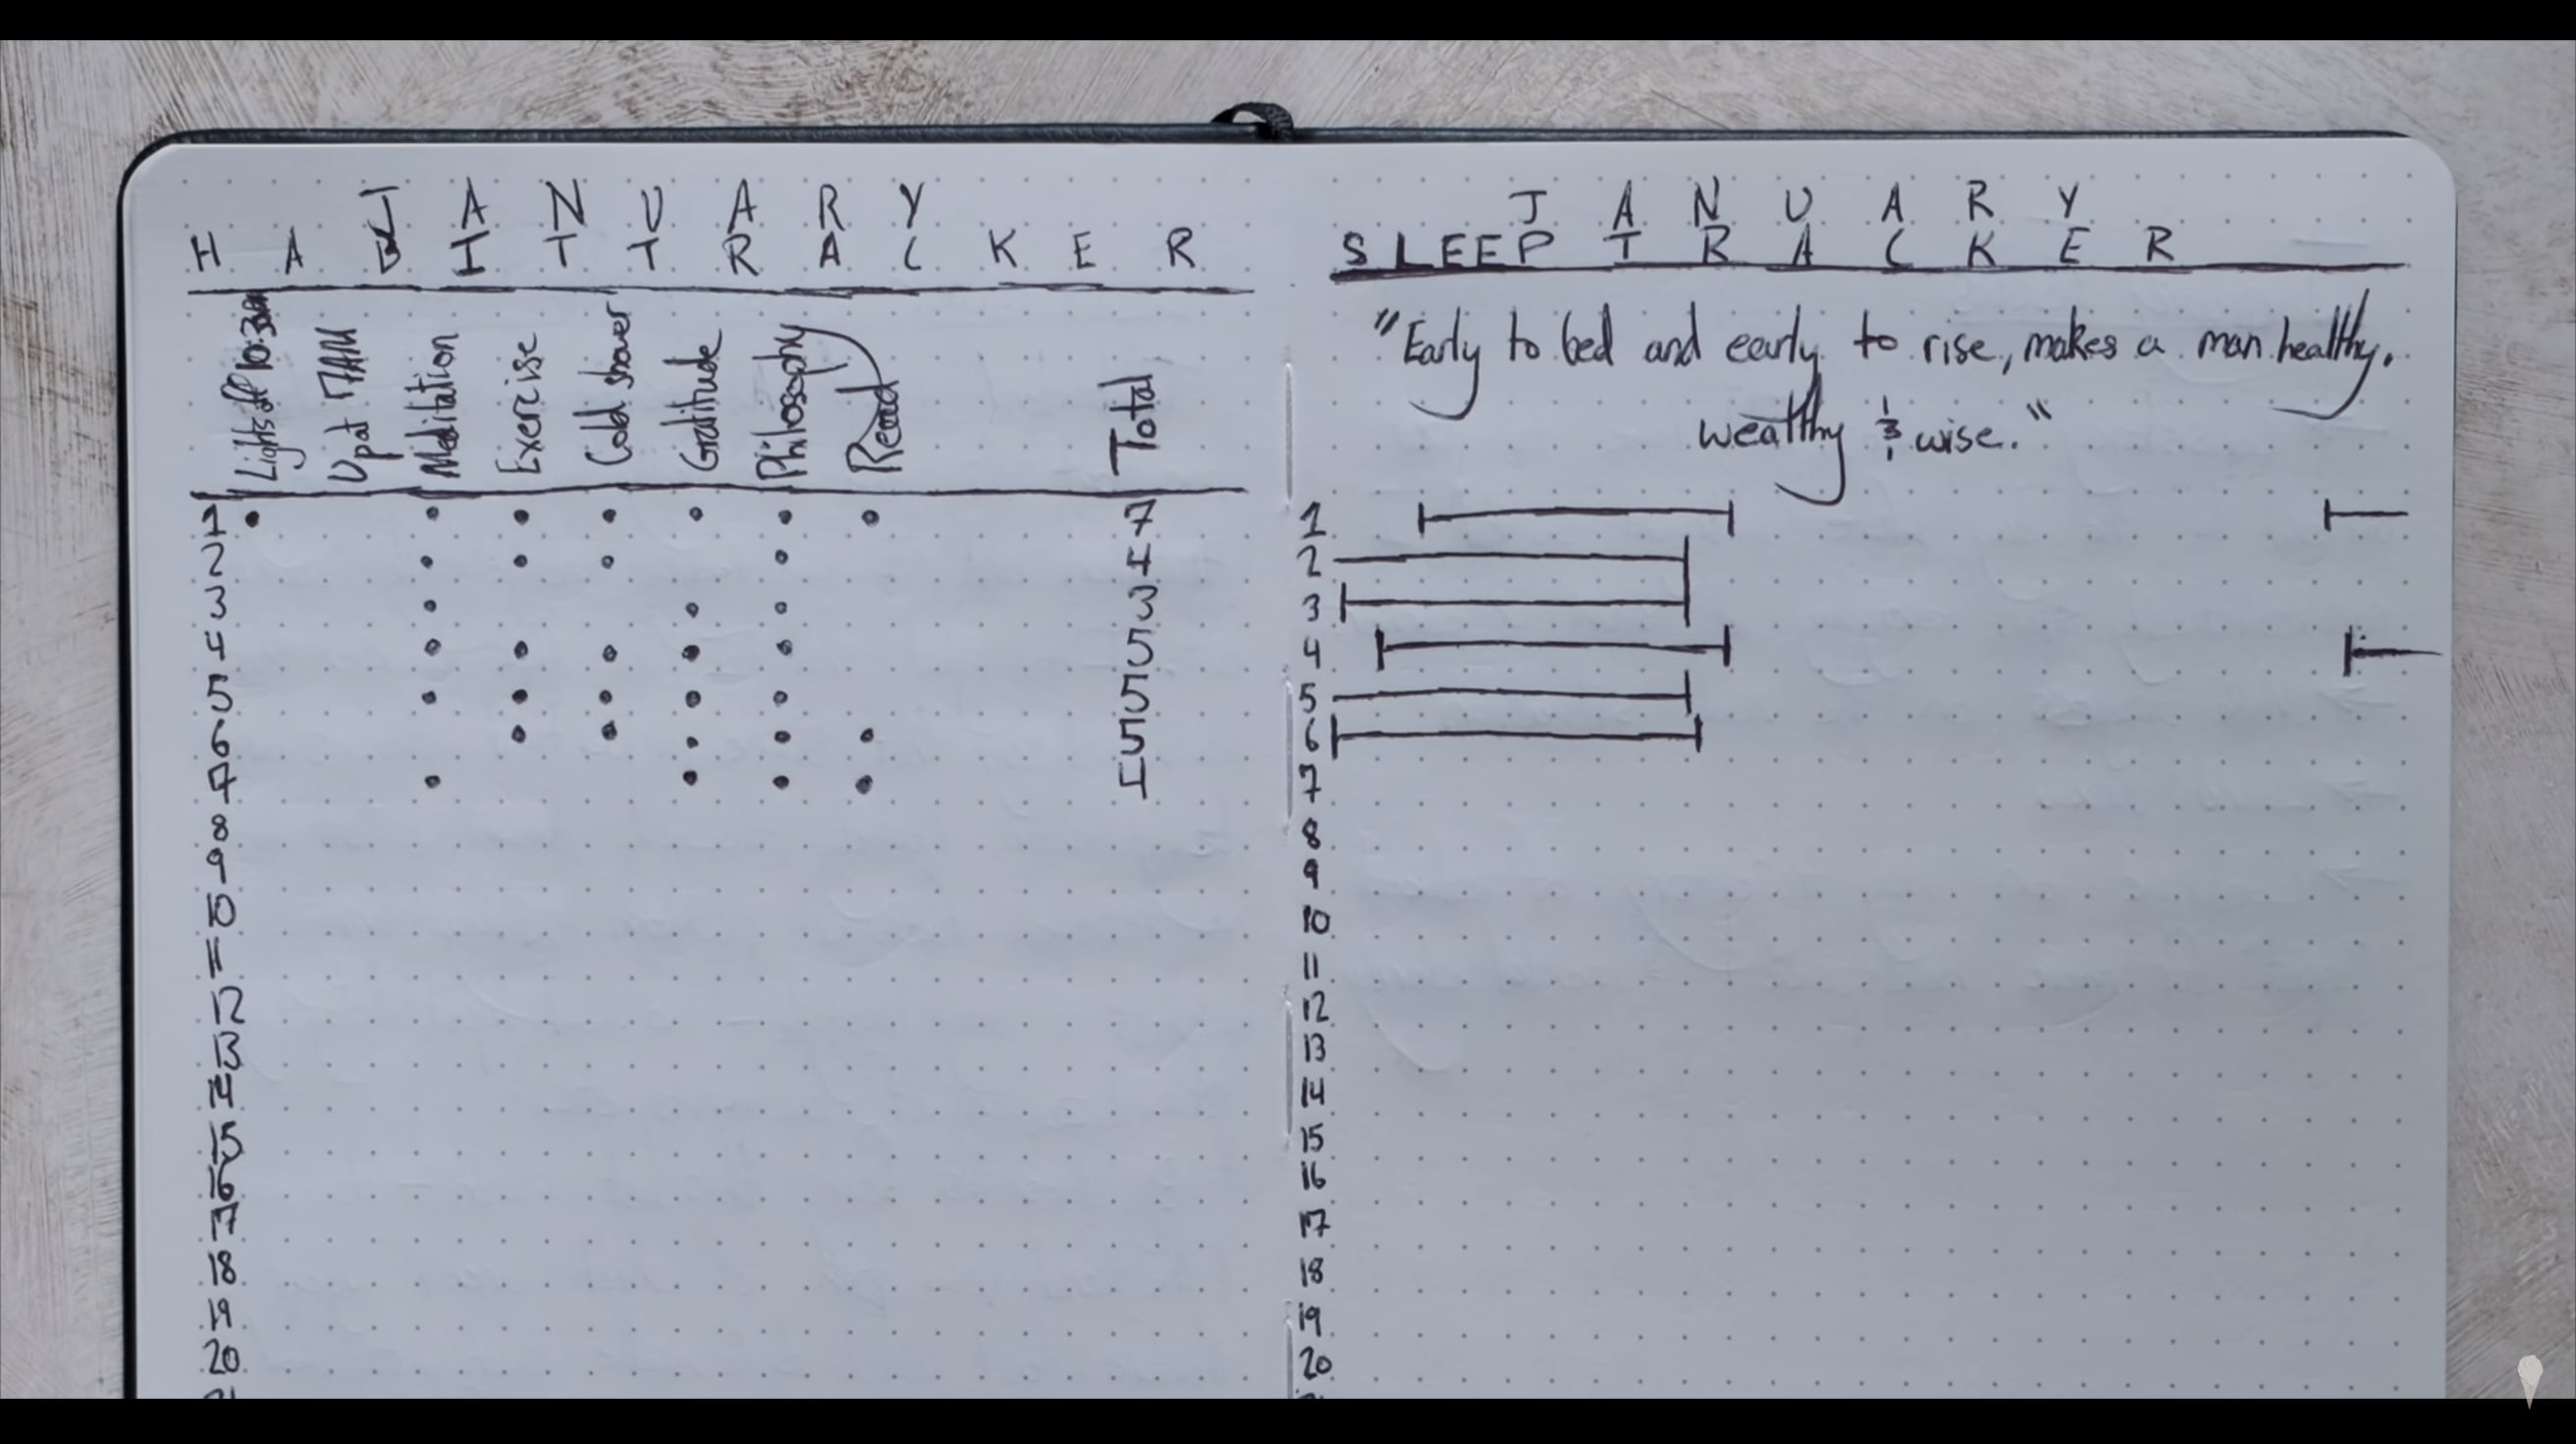 J A N U A R Y
H A B I T T R A C K E R
Lights off 10:30PM
Up at 7AM
Meditation
Exercise
Cold shower
Gratitude
Philosophy
Read
Total
1 7
2 4
3 3
4 5
5 5
6 5
7 4
8
9
10
11
12
13
14
15
16
17
18
19
20
21
J A N U A R Y
SLEEP T R A C K E R
"Early to bed and early to rise, makes a man healthy,
wealthy & wise."
1
2
3
4
5
6
7
8
9
10
11
12
13
14
15
16
17
18
19
20